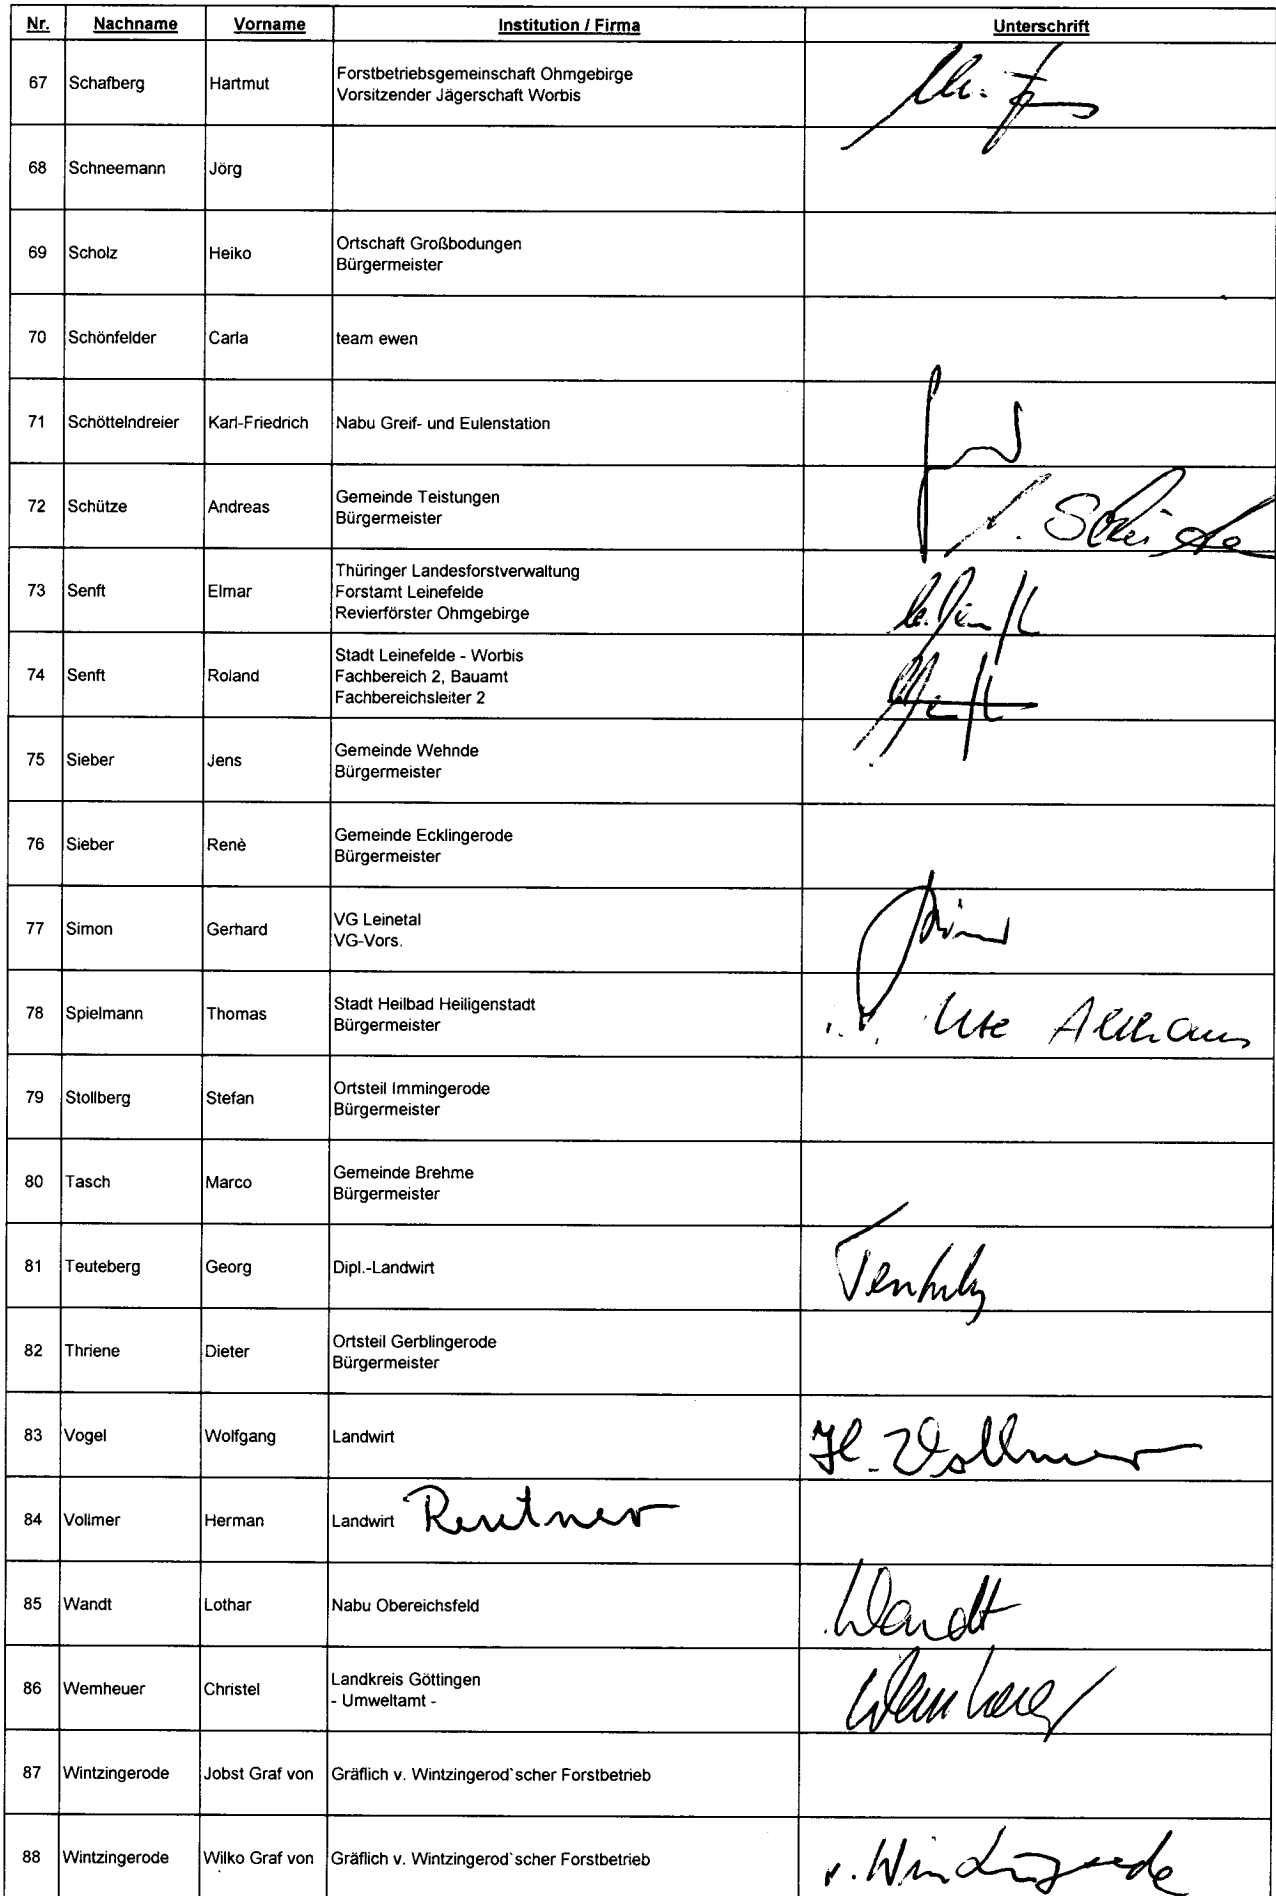 Nr. Nachname Vorname Institution / Firma Unterschrift
67 Schafberg Hartmut Forstbetriebsgemeinschaft Ohmgebirge
Vorsitzender Jägerschaft Worbis
68 Schneemann Jörg
69 Scholz Heiko Ortschaft Großbodungen
Bürgermeister
70 Schönfelder Carla team ewen
71 Schöttelndreier Karl-Friedrich Nabu Greif- und Eulenstation
72 Schütze Andreas Gemeinde Teistungen
Bürgermeister
73 Senft Elmar Thüringer Landesforstverwaltung
Forstamt Leinefelde
Revierförster Ohmgebirge
74 Senft Roland Stadt Leinefelde - Worbis
Fachbereich 2, Bauamt
Fachbereichsleiter 2
75 Sieber Jens Gemeinde Wehnde
Bürgermeister
76 Sieber Renè Gemeinde Ecklingerode
Bürgermeister
77 Simon Gerhard VG Leinetal
VG-Vors.
78 Spielmann Thomas Stadt Heilbad Heiligenstadt
Bürgermeister Ute Althaus
79 Stollberg Stefan Ortsteil Immingerode
Bürgermeister
80 Tasch Marco Gemeinde Brehme
Bürgermeister
81 Teuteberg Georg Dipl.-Landwirt
82 Thriene Dieter Ortsteil Gerblingerode
Bürgermeister
83 Vogel Wolfgang Landwirt H. Vollmer
84 Vollmer Herman Landwirt Rentner
85 Wandt Lothar Nabu Obereichsfeld Wandt
86 Wemheuer Christel Landkreis Göttingen Wemheuer
- Umweltamt -
87 Wintzingerode Jobst Graf von Gräflich v. Wintzingerod`scher Forstbetrieb
88 Wintzingerode Wilko Graf von Gräflich v. Wintzingerod`scher Forstbetrieb v. Wintzingerode